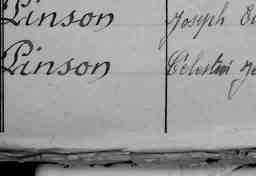 Pinson Joseph
Pinson Célestin